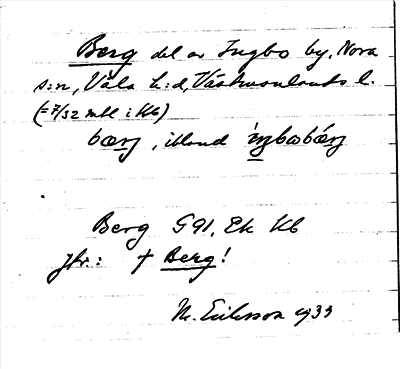 Berg del av Ingbo by, Nora
s:n, Våla h:d, Västmanlands l.
(= 7/32 mtl i Kb)
bærj, ibland
Berg G91, Ek Kb
Jfr.: † Berg!
M. Eriksson 1933